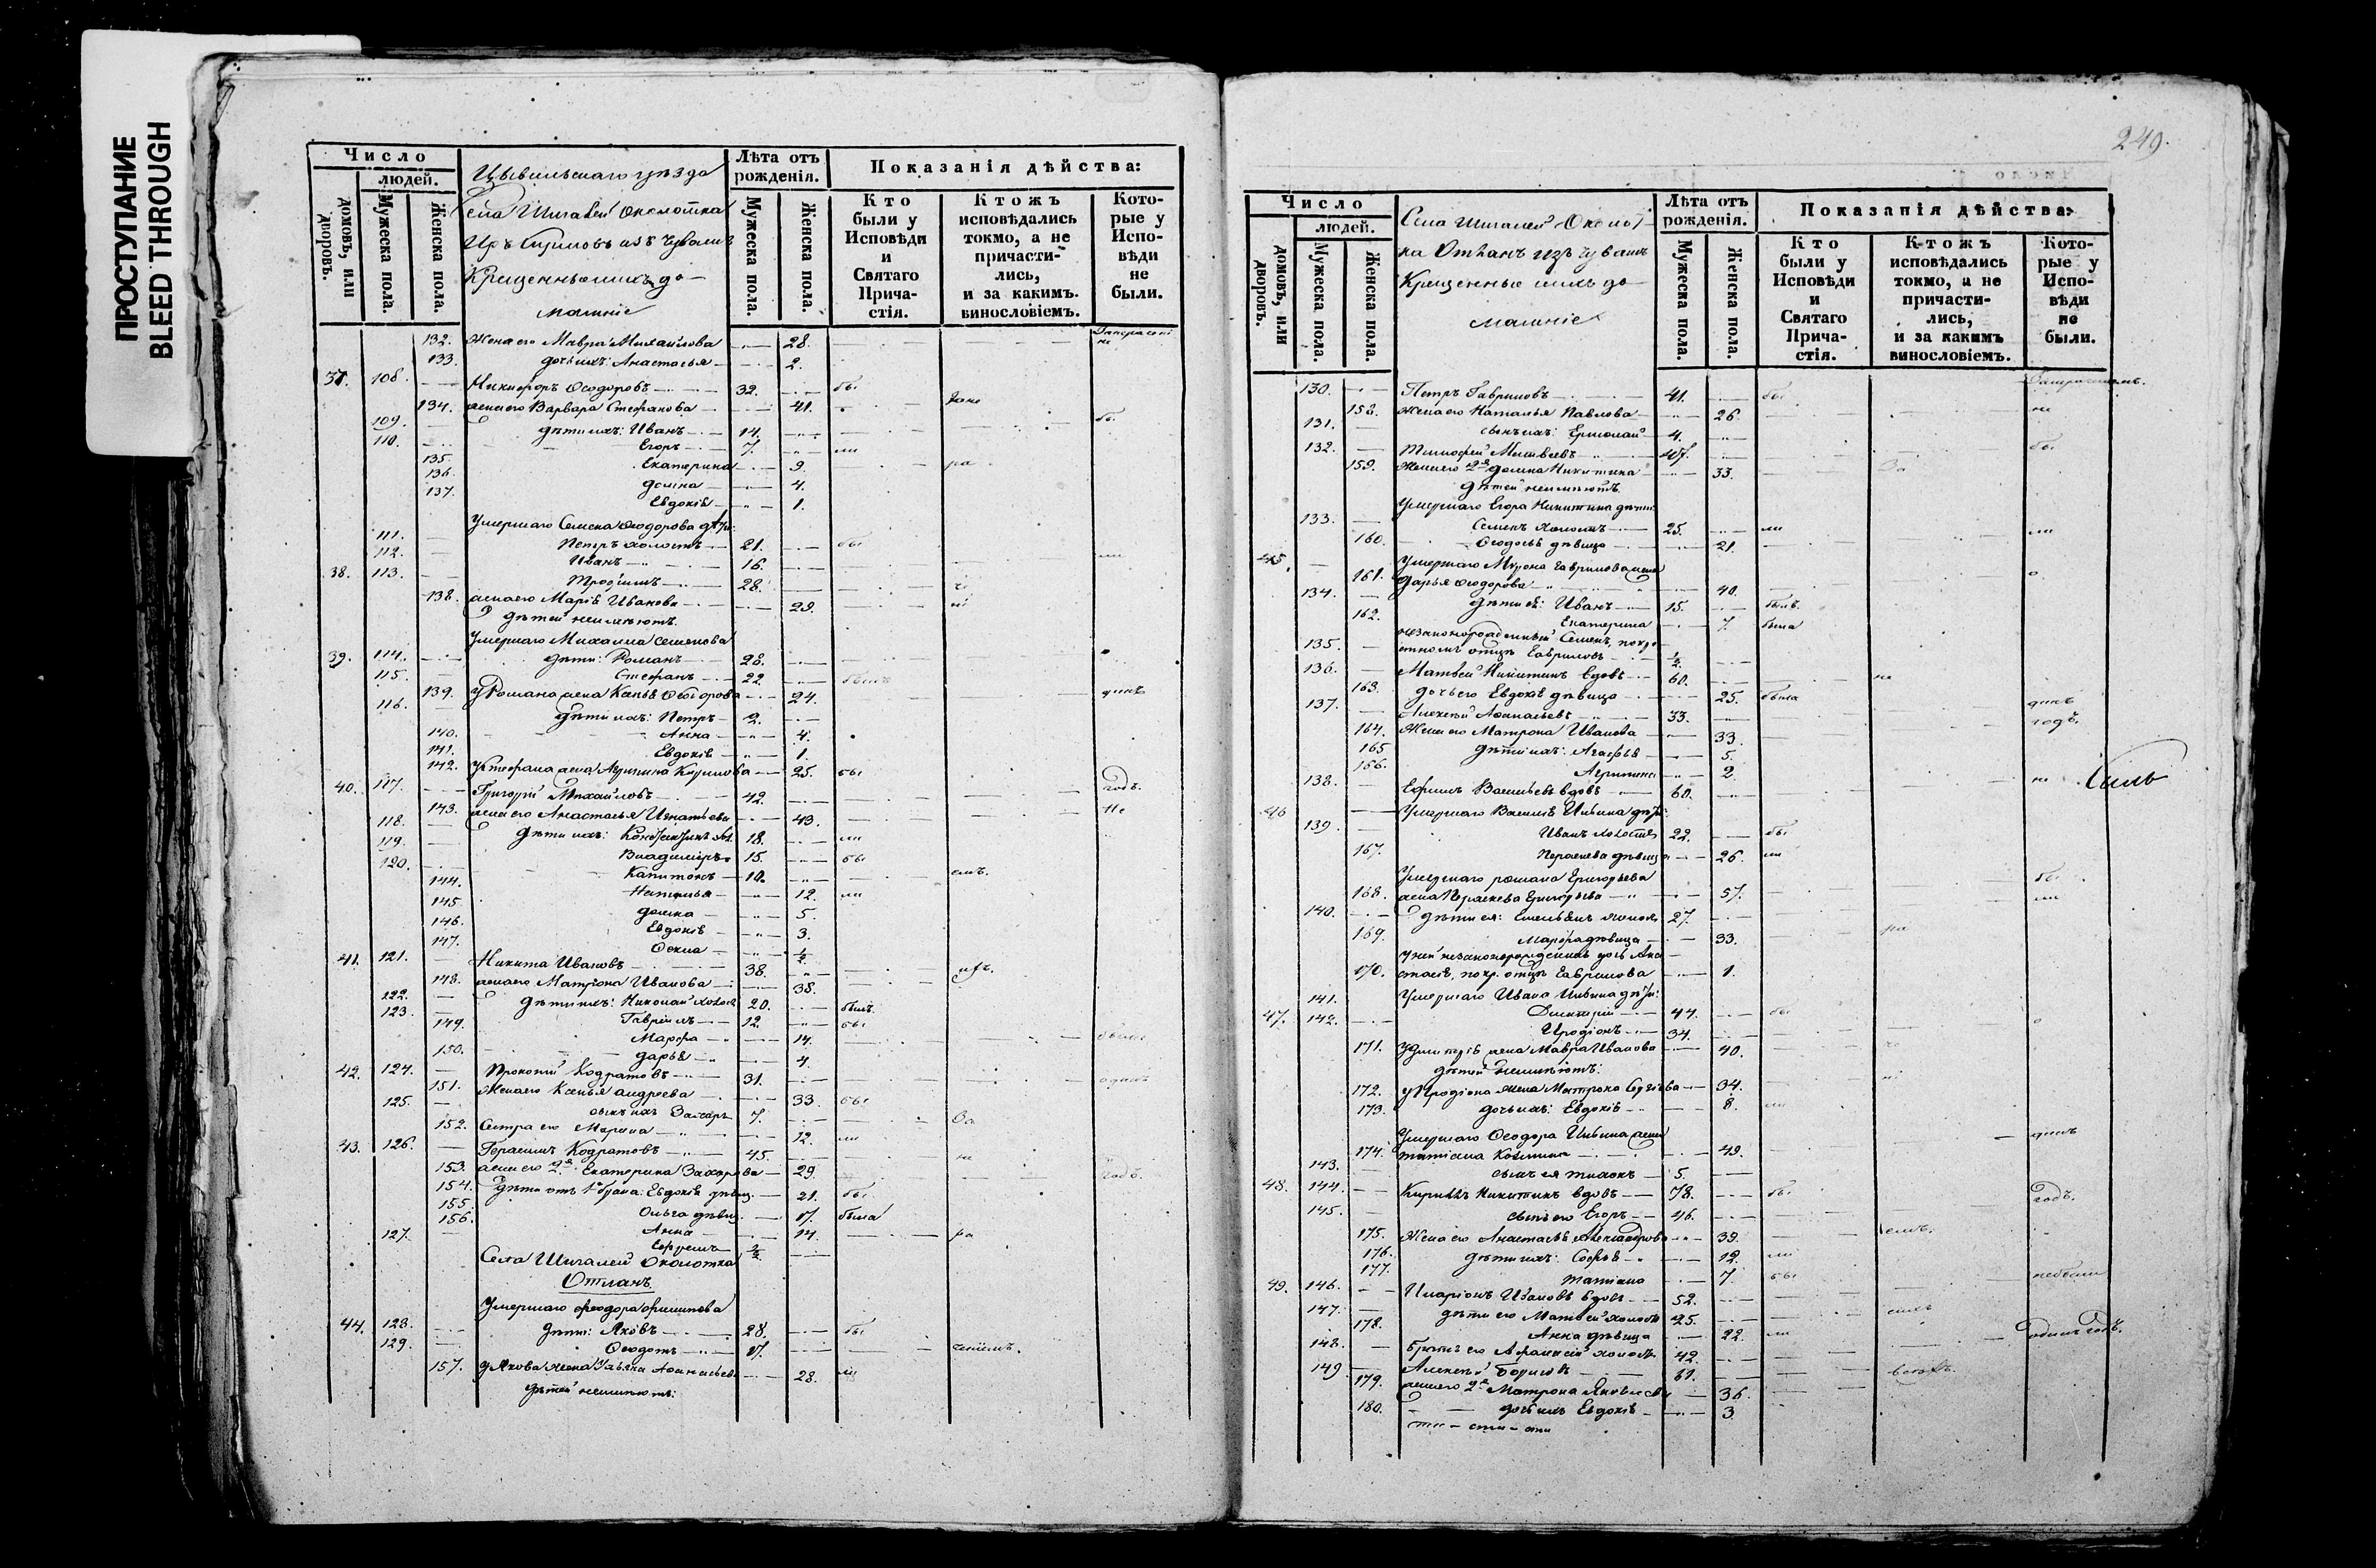 ПРОСТУПАНИЕ
BLEED THROUGH
Число
людей.
домовъ, или дворовъ.
Мужеска пола.
Женска пола.
Цывильскаго уѣзда
Села Шигалей Околотка
изъ Чувашъ
Крещенныхъ до
машніе
Лѣта отъ рожденія.
Мужеска пола.
Женска пола.
Показанія дѣйства:
Кто были у Исповѣди и Святаго Прича- стія.
Ктожъ исповѣдались токмо, а не причасти- лись, и за какимъ. винословіемъ.
Кото- рые у Испо- вѣди не были.
132. Жена его Мавра Михайлова 28.
133. дочь ихъ: Анастасья 2.
37. 108. Никифоръ Ѳеодоровъ 32. бы
134. жена его Варвара Стефанова 41.
109. дѣти ихъ: Иванъ 14. бы
110. Егоръ 7. ли
135. Екатерина 9. ра
136. Домна 4.
137. Евдокія 1.
Умершаго Семена Ѳеодорова дѣти:
111. Петръ холостъ 21. бы
112. Иванъ 16. ли
38. 113. Трофимъ 28.
138. жена его Марія Иванова 29.
дѣтей неимѣютъ.
Умершаго Михаила Семенова
39. 114. дѣти: Романъ 28.
115. Стефанъ 22.
139. У Романа жена Ксенія Ѳеодорова 24.
116. дѣти ихъ: Петръ 2.
140. Анна 4.
141. Евдокія 1.
142. У Стефана жена Агрипина Кирилова 25. бы
40. 117. Григорій Михайловъ 42. годъ.
143. жена его Анастасья Игнатьева 43. не
118. дѣти ихъ: Константинъ хол. 18. ли
119. Владимиръ 15. бы
120. Капитонъ 10. емъ.
144. Наталья 12. ли
145. Домна 5.
146. Евдокія 3.
147. Ѳекла 1/2
41. 121. Никита Ивановъ 38.
148. жена его Матрона Иванова 38.
122. дѣти ихъ: Николай холост 20. былъ
123. Гавріилъ 12. бы
149. Марѳа 14.
150. Дарья 4.
42. 124. Прокопій Кодратовъ 31.
151. Жена его Ксенья Андреева 33. бы
125. сынъ ихъ Захаръ 7.
152. Сестра его Марина 12. ли
43. 126. Герасимъ Кодратовъ 45. не
153. жена его 2я Екатерина Захарова 29. годъ.
154. Дѣти отъ 1го брака: Евдокія дѣвиц. 21. бы
155. Ольга дѣвиц. 17. была
156. Анна 14. ра
127. Ефремъ 1/2
Села Шигалей Околотка
Отланъ.
Умершаго Ѳеодора Филипова
44. 128. дѣти: Яковъ 28. бы
129. Ѳеодотъ 17.
157. У Якова жена Ульяна Аѳанасьева 28. ли
дѣтей неимѣютъ:
249.
Число
людей.
домовъ, или дворовъ.
Мужеска пола.
Женска пола.
Села Шигалей Околот
ка Отланъ изъ Чувашъ
Крещенные ихъ до
машніе
Лѣта отъ рожденія.
Мужеска пола.
Женска пола.
Показанія дѣйства:
Кто были у Исповѣди и Святаго Прича- стія.
Ктожъ исповѣдались токмо, а не причасти- лись, и за какимъ винословіемъ.
Кото- рые у Испо- вѣди не были.
130. Петръ Гавриловъ 41. бы
158. Жена его Наталья Павлова 26. не
131. сынъ ихъ: Ермолай 4.
132. Тимофей Матвеевъ 47. бы
159. Жена его 2я Домна Никитина 33. За
дѣтей неимѣютъ.
Умершаго Егора Никитина дѣти:
133. Семенъ холостъ 25. ли ли
160. Ѳеодосья дѣвица 21.
45. Умершаго Мирона Гаврилова жена
161. Дарья Ѳеодорова 40.
134. дѣти ея: Иванъ 15. былъ
162. Екатерина 7. была
незаконорожденный Семенъ, по кре
135. стномъ отцѣ Гавриловъ 1/2
136. Матвей Никитинъ вдовъ 60. не
163. дочь его Евдокія дѣвица 25. была
137. Алексей Аѳанасьевъ 33. годъ.
164. Жена его Матрона Иванова 33.
165. дѣти ихъ: Агафья 5.
166. Агрипина 2.
138. Ефимъ Васильевъ вдовъ 60. не
46. Умершаго Василья Ильина дѣти:
139. Иванъ холостъ 22. бы
167. Параскева дѣвица 26. ли
Умершаго Романа Григорьева бы
168. жена Параскева Григорьева 57. ли
140. дѣти ея: Емельянъ холост 27.
169. Марѳа дѣвица 33. ра
У ней незаконорожденная дочь Ана
170. стасія, по кр. отцѣ Гаврилова 1.
141. Умершаго Ивана Ильина дѣти:
47. 142. Димитрій 44. бы
Иродіонъ 34.
171. У Димитрія жена Мавра Иванова 40.
дѣтей неимѣютъ:
172. У Иродіона жена Матрона Сергѣева 34.
173. дочь ихъ: Евдокія 8. ли
Умершаго Ѳеодора Ильина жена
174. Татіана Козьмина 49.
143. сынъ ея Тихонъ 5.
48. 144. Кириллъ Никитинъ вдовъ 78. бы годъ.
145. сынъ его Егоръ 46.
175. Жена его Анастасья Александрова 39. емъ.
176. дѣти ихъ: Софья 12. ли
177. Татіана 7. бы
49. 146. Иларіонъ Ивановъ вдовъ 52.
147. дѣти его Матвей холостъ 25.
178. Анна дѣвица 22. ли одинъ годъ.
148. Братъ его Афанасій холостъ 42.
149. Алексей Борисовъ 61.
179. жена его 2я Матрона Яковлева 36.
180. дочь ихъ Евдокія 3.